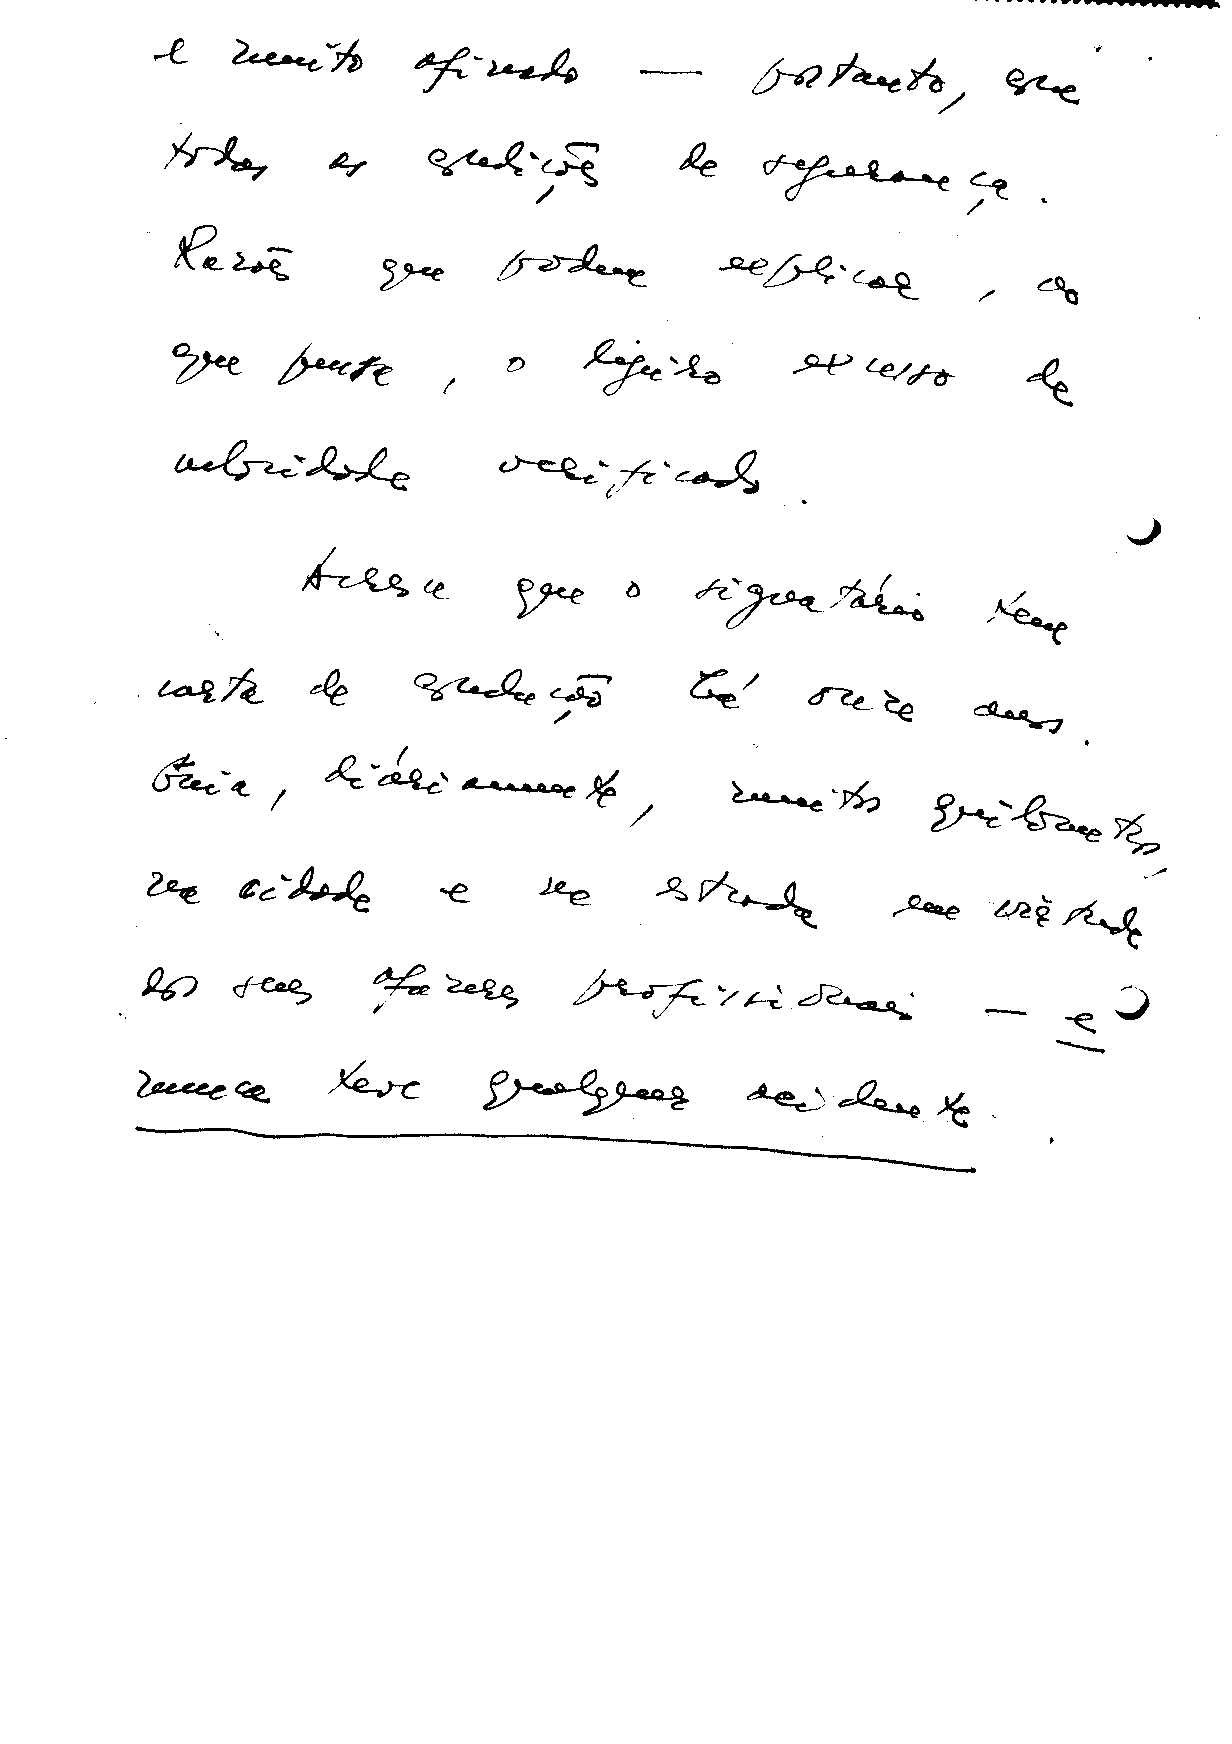 e muito afinado — portanto, com
todas as condições de segurança.
Razões que podem explicar, ao
que penso, o ligeiro excesso de
velocidade verificado.
Acresce que o signatário tem
carta de condução há onze anos.
Guia, diáriamente, muitos quilometros,
na cidade e na estrada em virtude
dos seus afazeres profissionais — e
nunca teve qualquer acidente.